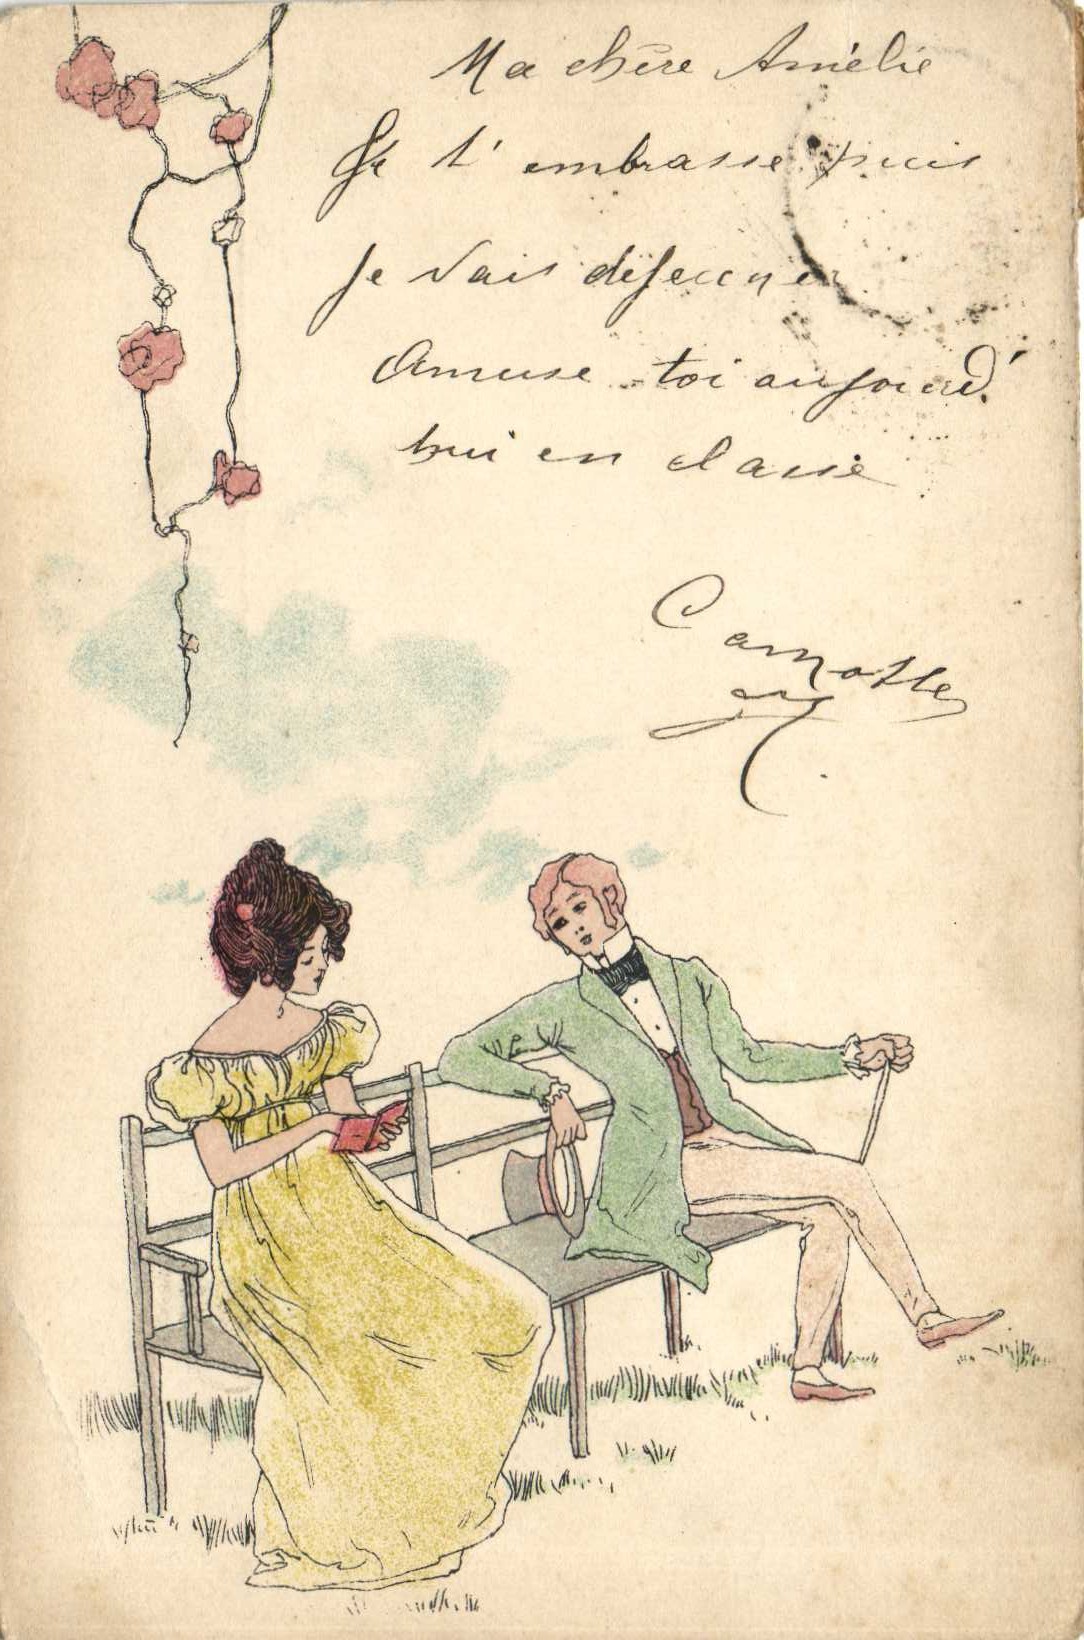 Ma chère Amélie
Je t'embrasse puis
je vais déjeuner
Amuse-toi aujourd'
hui en classe